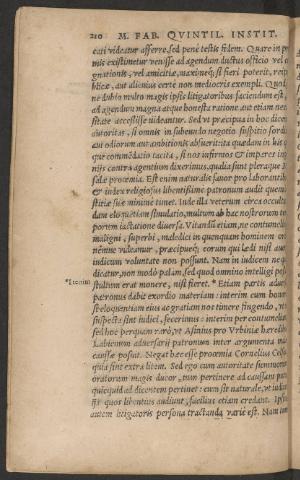 210 M. FAB. QVINTIL. INSTIT.
cati videatur afferre, sed penè testis fidem. Quare in pri
mis existimetur venisse ad agendum ductus officio vel co
gnationis, vel amicitiæ, maximeq́; si fieri poterit, reipu
blicæ, aut alicuius certè non mediocris exempli. Quod
ne dubio multo magis ipsis litigatoribus faciendum est,
ad agendum magna atque honesta ratione, aut etiam nece
sitate accessisse videantur. Sed vt præcipua in hoc dicen
autoritas, si omnis in subeundo negotio suspitio sordiū
aut odiorum aut ambitionis absuerit: ita quædam in his q
que commēdatio tacita, si nos infirmos & impares inge
nijs contra agentium dixerimus. qualia sunt pleraque M
salæ procemia. Est enim naturalis fauor pro laborantib
& iudex religiosus libentissimè patronum audit quem
stitiæ suæ minimè timet. Inde illa veterum circa occulta
dam eloquētiam simulatio, multum ab hac nostrorum te
porum iactatione diuersa. Vitandū etiam, ne contumelios
maligni, superbi, maledici in quenquam hominem ord
némue videamur, præcipueq́; eorum qui lædi nisi aduersa
iudicum voluntate non possunt. Nam in iudicem ne qu
dicatur, non modò palàm, sed quod omnino intelligi possi
stultum erat monere, nisi fieret. * Etiam partis aduersæ
patronus dabit exordio materiam: interim cum honore
si eloquentiam eius ac gratiam nos timere fingendo, vt
suspecta sint iudici, fecerimus: interim per contumelia
sed hoc perquàm rarò, vt Asinius pro Vrbiniæ hæredib
Labienum aduersarij patronum inter argumenta mal
causæ posuit. Negat hæc esse procemia Cornelius Celsu
quia sint extra litem. Sed ego cum autoritate summorum
oratorum magis ducor, tum pertinere ad caussam puto
quicquid ad dicentem pertinet: cum sit naturale, vt iudic
ijs quos libentius audiunt, facilius etiam credant. Ipsius
autem litigatoris persona tractanda variè est. Nam tum